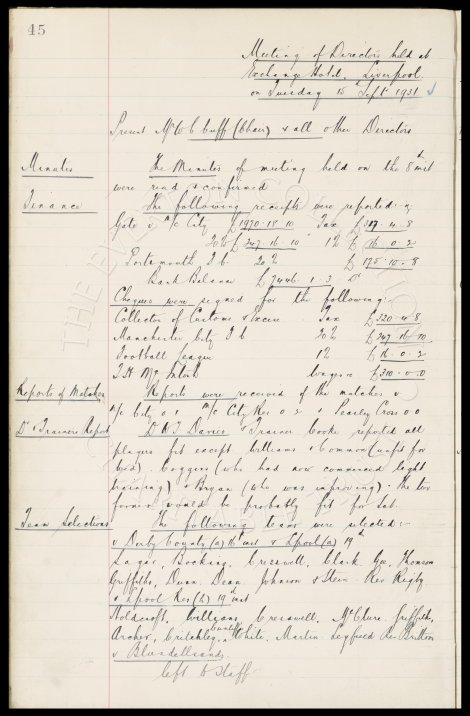 45
Meeting of Directors held at
Exchange Hotel, Liverpool
on Tuesday 15th Sept 1931
Present Mr W C Cuff (Chair) & all other Directors
Minutes The Minutes of meeting held on the 8th inst
were read & confirmed
Finance The following receipts were reported:-
Gate v M/c City £1970.18.10 Tax £ 4.8
20% £347.16.10 1% £16.0.2
Portsmouth F.C. 20% £175.10.8
Bank Balance £7446.1.3 Dr
Cheques were signed for the following:-
Collector of Customs & Excise Tax £320.4.8
Manchester City F.C 20% £347.16.10
Football League 1% £16.0.2
T.H. McIntosh wages £310.0.0
Reports of Matches Reports were received of the matches v
M/c City 0 1 M/c City Res 0 2 & Pearly Cross 0 0
Dr & Trainers Report Dr & Trainers books reported all
players fit except Williams & Common (unfit for
Coggins (who had now commenced light
training) & Bryan (who was improving). The two
former would be probably fit for Sat.
Team Selections The following teams were selected:-
v Derby County (a) 16th inst & L'pool (a) 19th
Sagar, Bocking, Cresswell, Clark, Gee, Thomson
Griffiths, Dunn, Dean, Johnson & Stein. Res Rigby
v L'pool Res (h) 19th inst
Holdcroft, Williams, Cresswell, McClure, Griffiths,
Archer, Critchley, Cunliffe, White, Martin, Leyfield Res Britton
v Blundellsands
left to Staff